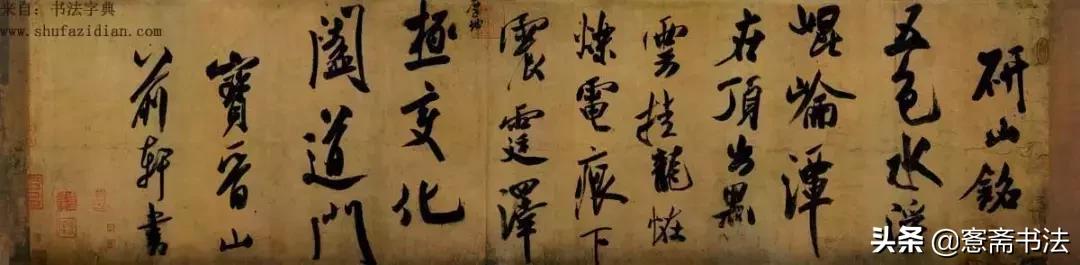 研山銘
五色水浮
崐崘潭
在頂出黑
雲挂龍怪
爍電痕下
震霆澤
厚坤
極变化
闔道門
寶晉山
前軒書
来自：书法字典
www.shufazidian.com
头条 @愙斋书法